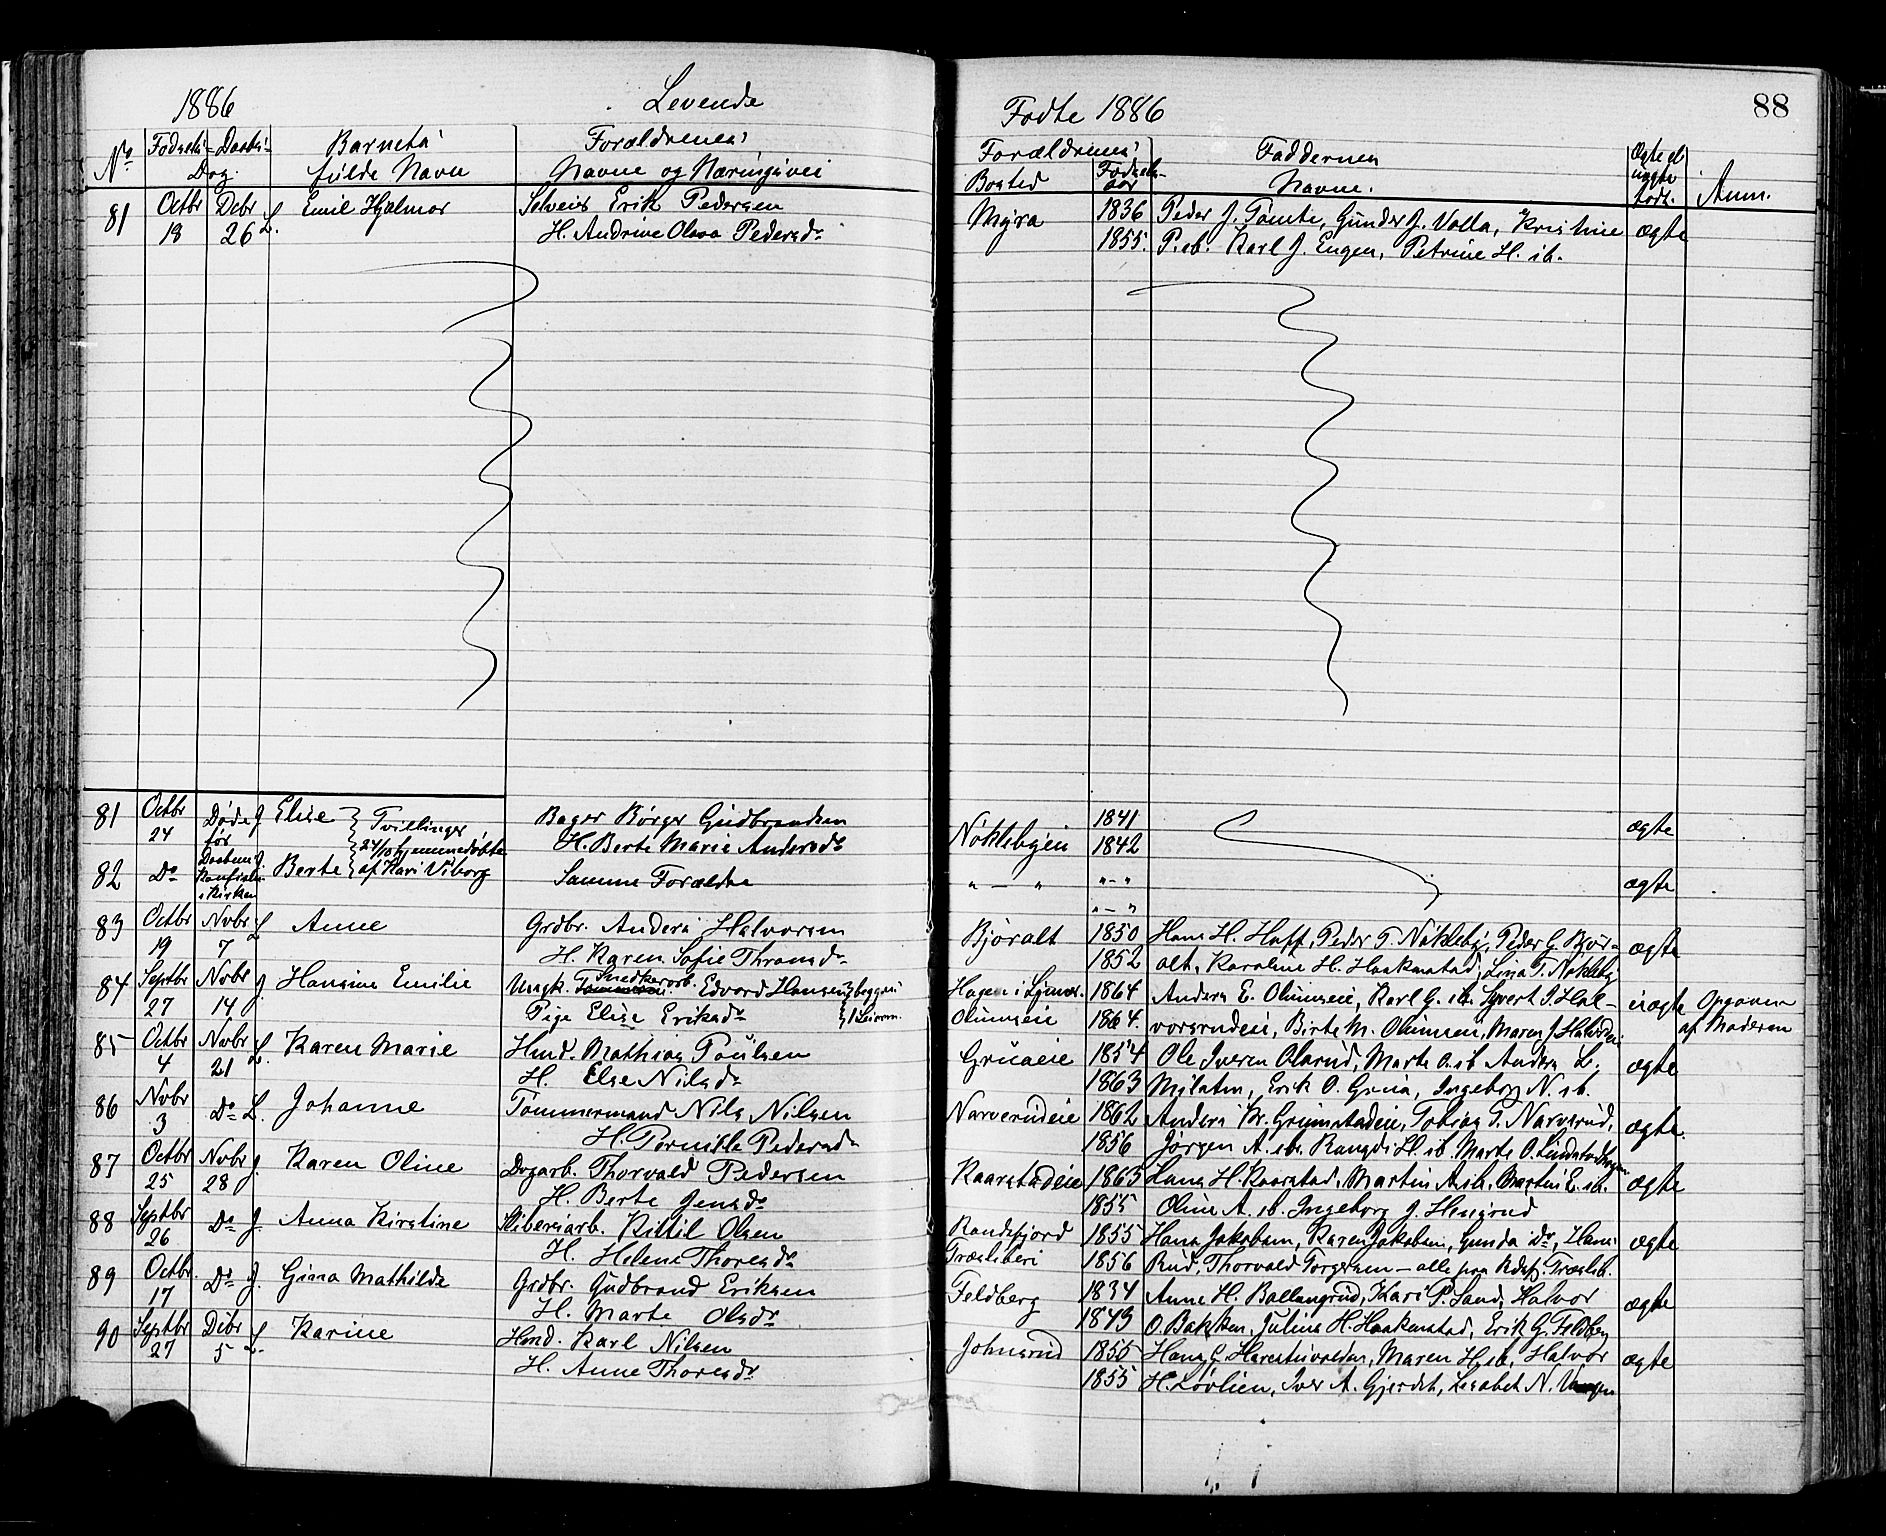 1886 Levende
No Fødsels- Daabs- Barnets Forældrenes
Dag. fulde Navn Navne og Næringsvei
81 Octbr Debr L. Emil Hjalmar Selveier Erik Pedersen
18 26 H. Andrine Olava Pedersdr
81 Octbr Døde J Elise Tvillinger Bager Børger Gudbrandsen
24 før 24/10 hjemmedøbte H. Berte Marie Andersdr
82 Do Daabens J. Berte af Kari Viborg Samme Forældre
i Kirken
83 Octbr Novbr L Anne Grdbr. Anders Halvorsen
19 7 H. Karen Sofie Thronsdr
84 Septbr Novbr J. Hansine Emilie Ungk. Snedkerarb. Edvard Hansen begges
27 14 Pige Elise Eriksdr 1 Leierm.
85 Octbr Novbr L. Karen Marie Hmd. Mathias Poulsen
4 21 H. Else Nilsdr
86 Novbr Do L. Johanne Tømmermand Nils Nilsen
3 H. Pernille Pedersdr
87 Octbr Novbr J. Karen Oline Dagarb. Thorvald Pedersen
25 28 H. Berte Jensdr
88 Septbr Do J. Anna Kirstine Sliberiarb. Kittil Olsen
26 H. Helene Thoresdr
89 Octbr Do J. Gina Mathilde Grdbr. Gudbrand Eriksen
17 H. Marte Olsdr
90 Septbr Debr L. Karine Hmd. Karl Nilsen
27 5 H. Anne Thoresdr
Fødte 1886 88
Forældrenes Faddernes Ægte el
Bosted Fødsels- Navne. uægte Anm.
aar født.
Myra 1836 Peder J. Tømte, Gunder J. Volla, Kristine ægte
1855. P. sb. Karl J. Engen, Petrine H. ib.
1841 ægte
Nøklebyeie 1842
" — " " - " ægte
" — "
Bjøralt 1850 Hans H. Hoff, Peder T. Nøkleby, Peder G. Bjør- ægte
1852 alt, Karoline H. Haakenstad, Lina T. Nøkleby
Hagen i 1864 Anders E. Olimseie, Karl G. ib. Syvert J. Hal- uægte Opgaven
Olimseie 1864. vorsrudeie, Birte M. Olimseie, Maren J. af Moderen
Gruaeie 1854 Ole Iversen Olsrud, Marte O. ib. Anders L. ægte
1863 Mylaten, Erik O. Grua, Ingeborg N. ib.
Narverudeie 1862 Anders Kr. Grimstadeie, Tobias T. Narverud, ægte.
1856 Jørgen A. ib. Rangdi H. ib. Marte O.
Kaarstadeie 1863 Lans H. Kaarstad, Martin A. ib. Martin E. ib. ægte
1855 Oline A. ib. Ingeborg J. Hensrud
Randsfjord 1855 Hans Jakobsen, Karen Jakobsen, Gunda do, Hans ægte
Træsliberi 1856 Rud, Thorvald Torgersen — alle paa Rdsfj. Træslib.
Feldberg 1834 Anne H. Ballangrud, Kari P. Sand, Halvor ægte
1843 O. Bakken, Julius H. Haakenstad, Erik G. Feldberg
Johnsrud 1855 Hans G. Maren H. ib, Halvor ægte
1855 H. Løvlien, Iver A. Gjerdet, Lisabet N.